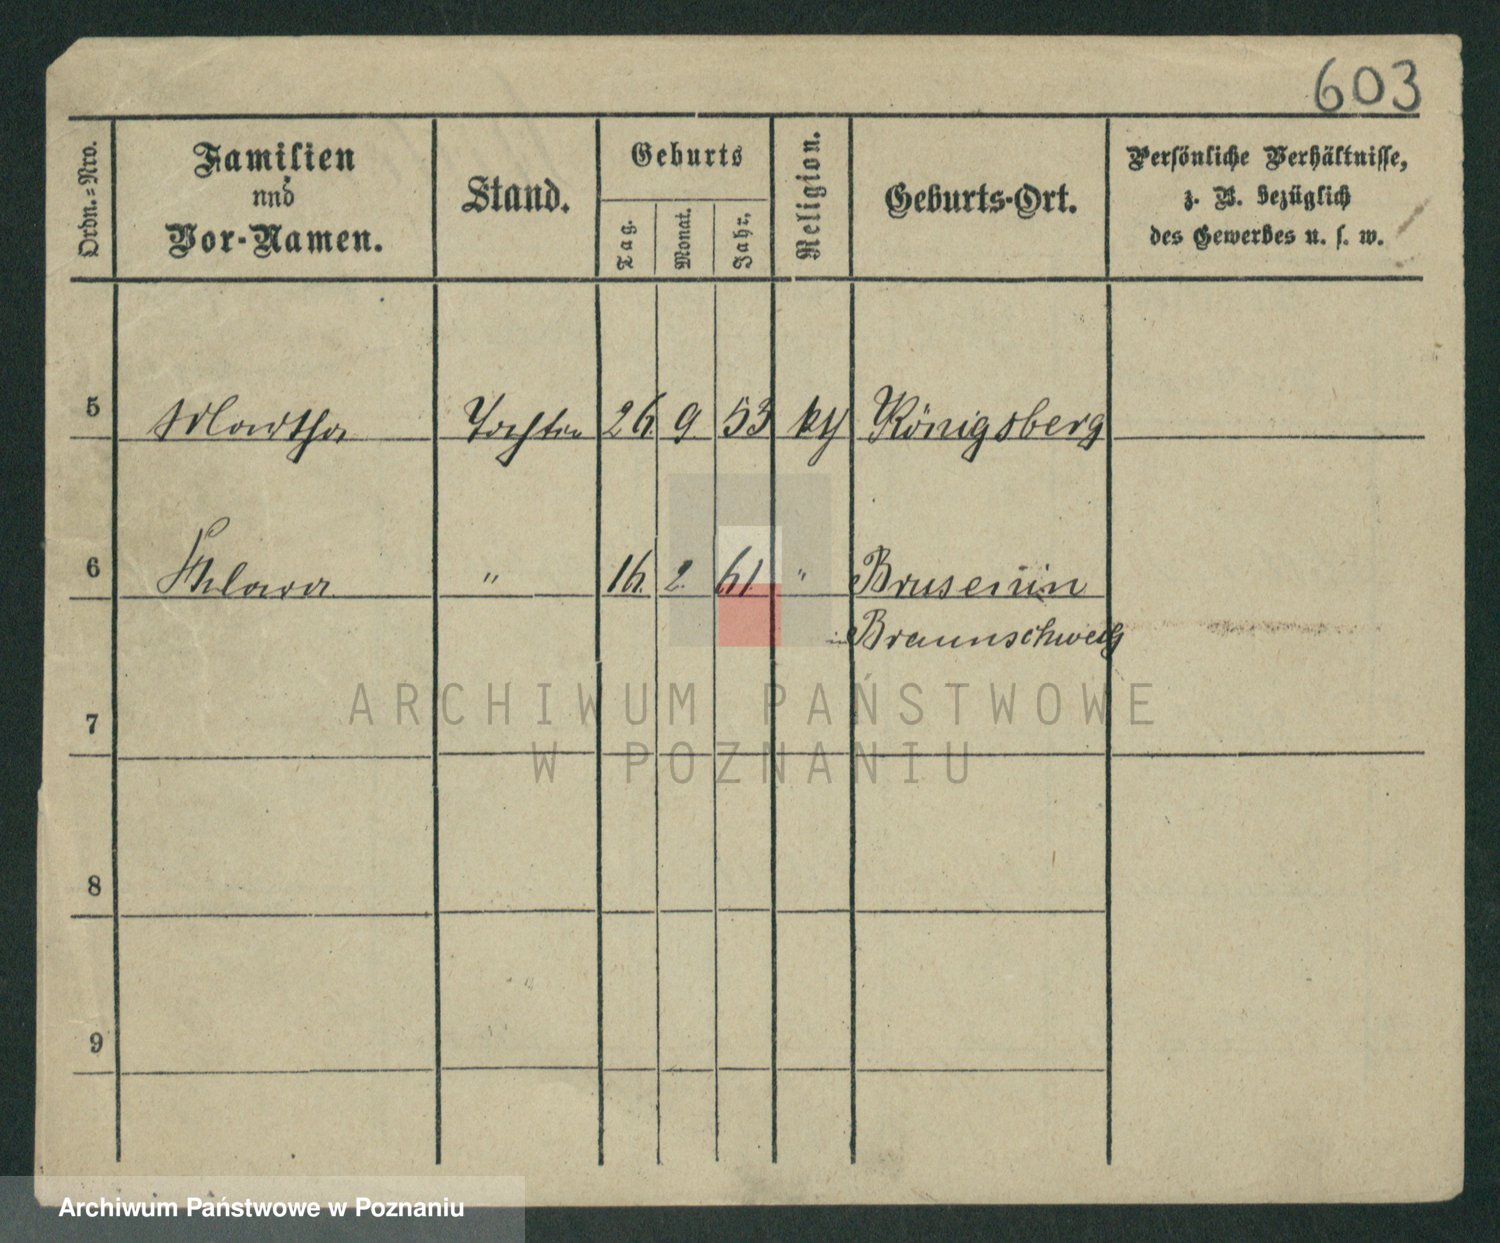 603
Ordn.=Nro.
Familien
und
Vor-Namen.
Stand.
Geburts
Tag.
Monat.
Jahr,
Religion.
Geburts-Ort.
Persönliche Verhältnisse,
z. B. bezüglich
des Gewerbes u. s. w.
5 Martha Tochter 26. 9. 53 Königsberg
6 Klara " 16. 2. 61. "
in Braunschweig
7
8
9
ARCHIWUM PAŃSTWOWE
W POZNANIU
Archiwum Państwowe w Poznaniu